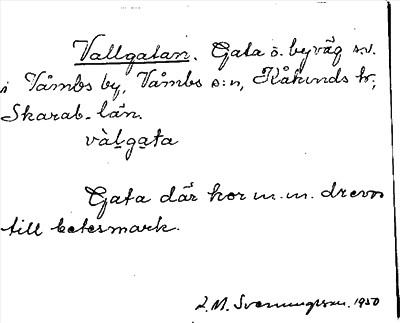 Vallgatan. Gata ö. byväg s.v.
i Våmbs by, Våmbs s:n, Kåkinds hr,
Skarab. län.
vàḷgata
Gata där kor m.m. drevos
till betesmark.
L.M. Svenungsson. 1950